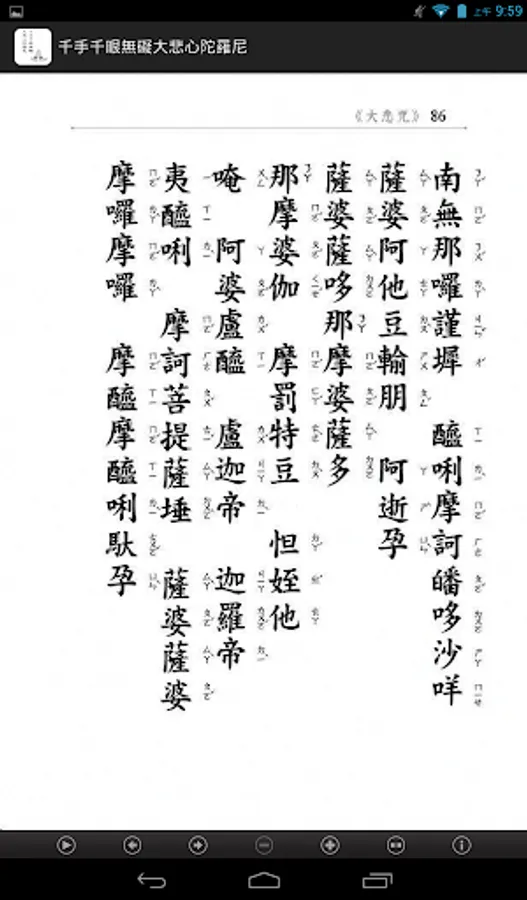 上午 9:59
千手千眼無礙大悲心陀羅尼
《大悲咒》 86
南無那囉謹墀 醯唎摩訶皤哆沙咩
薩婆阿他豆輸朋 阿逝孕
薩婆薩哆那摩婆薩多
那摩婆伽 摩罰特豆 怛姪他
唵 阿婆盧醯 盧迦帝 迦羅帝
夷醯唎 摩訶菩提薩埵 薩婆薩婆
摩囉摩囉 摩醯摩醯唎馱孕